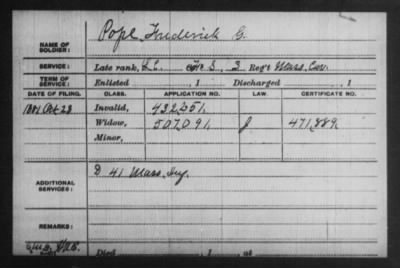 NAME OF SOLDIER: Pope, Frederick G.
SERVICE: Late rank, Co. 3 Reg't Mass. Cav.
TERM OF SERVICE: Enlisted , 1 Discharged , 1
DATE OF FILING. CLASS. APPLICATION NO. LAW. CERTIFICATE NO.
Oct 23 Invalid,
Widow, 507,091. J 471,889.
Minor,
ADDITIONAL SERVICES: D 41 Mass. Inf.
REMARKS:
Died , 1 , at